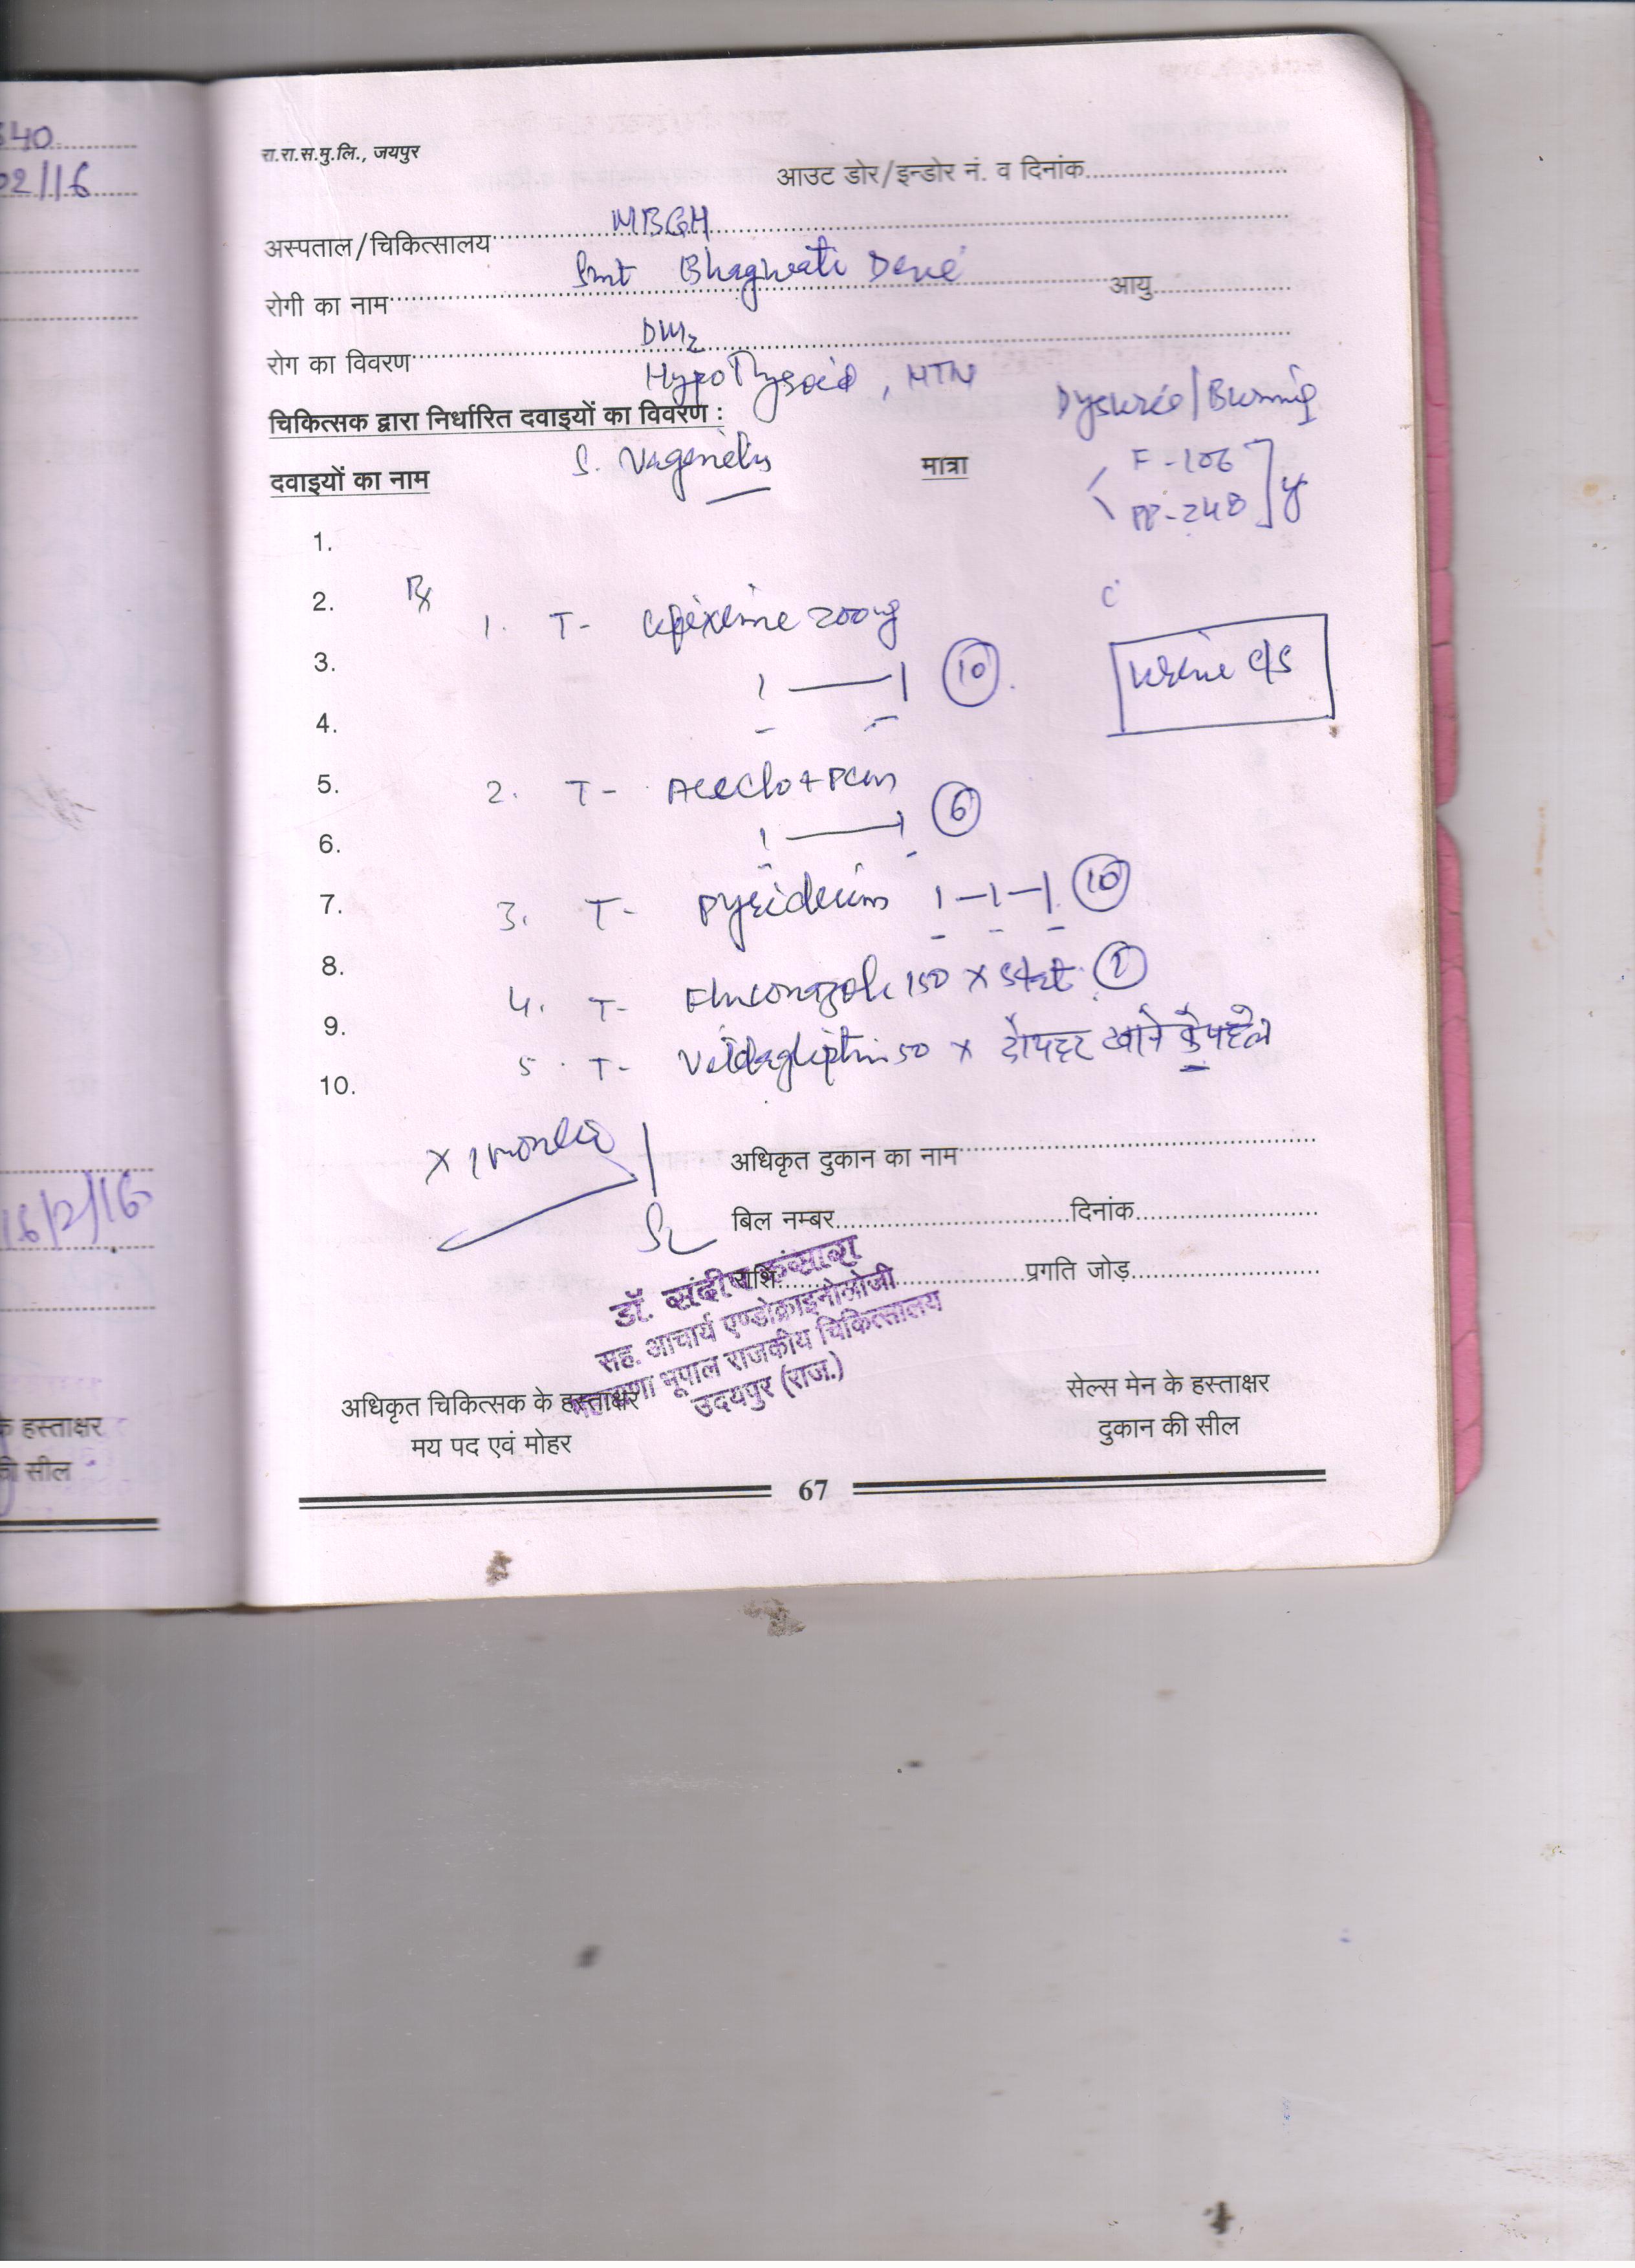 340
02/16
रा.रा.स.मु.लि., जयपुर
आउट डोर/इन्डोर नं. व दिनांक
अस्पताल/चिकित्सालय MBGH
रोगी का नाम Smt Bhagwati Devi आयु
रोग का विवरण DM2
Hypothyroid, HTN
Dysuria/Burning
चिकित्सक द्वारा निर्धारित दवाइयों का विवरण :
S. Vaginitis
दवाइयों का नाम
मात्रा
F-106
PP-248
1.
2.
3.
4.
5.
6.
7.
8.
9.
10.
Rx
1. T- Cefixime 200mg
1 — 1 (10)
Urine c/s
2. T- Aceclo+PCM
1 — 1 (6)
3. T- Pyridium 1-1-1 (10)
4. T- Fluconazole 150 x stat (1)
5. T- Vildagliptin 50 x दोपहर खाने के पहले
x 1 month
अधिकृत दुकान का नाम
बिल नम्बर दिनांक
राशि प्रगति जोड़
डॉ. संदीप कंसारा
सह. आचार्य एण्डोक्राइनोलोजी
महाराणा भूपाल राजकीय चिकित्सालय
उदयपुर (राज.)
अधिकृत चिकित्सक के हस्ताक्षर
मय पद एवं मोहर
सेल्स मेन के हस्ताक्षर
दुकान की सील
67
16/2/16
के हस्ताक्षर
की सील